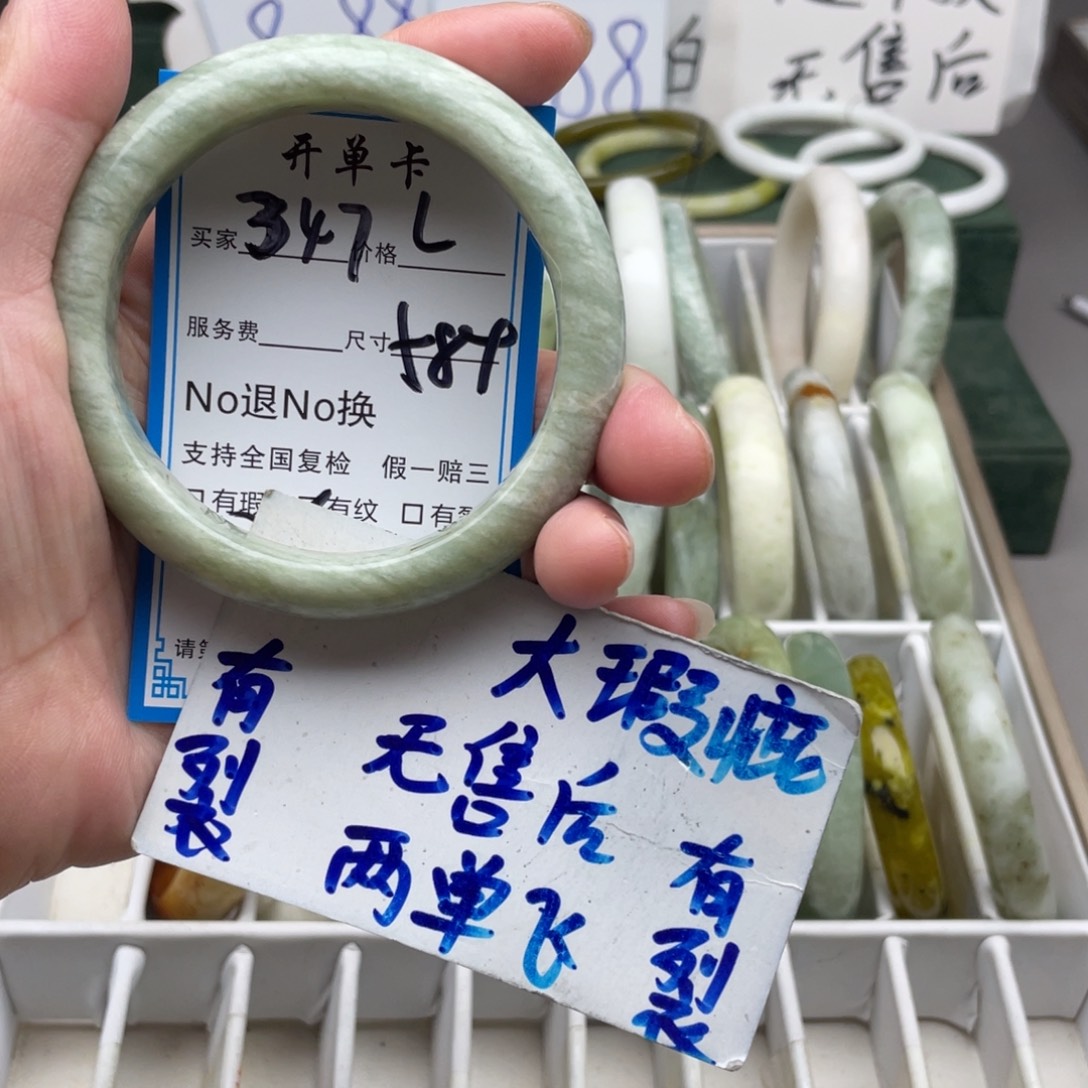 8 88
88
白
无售后
开单卡
买家347 价格L
服务费 尺寸
No退No换
支持全国复检 假一赔三
口有瑕 有纹 口有裂
请
有裂
大瑕疵
无售后
两单飞
有裂